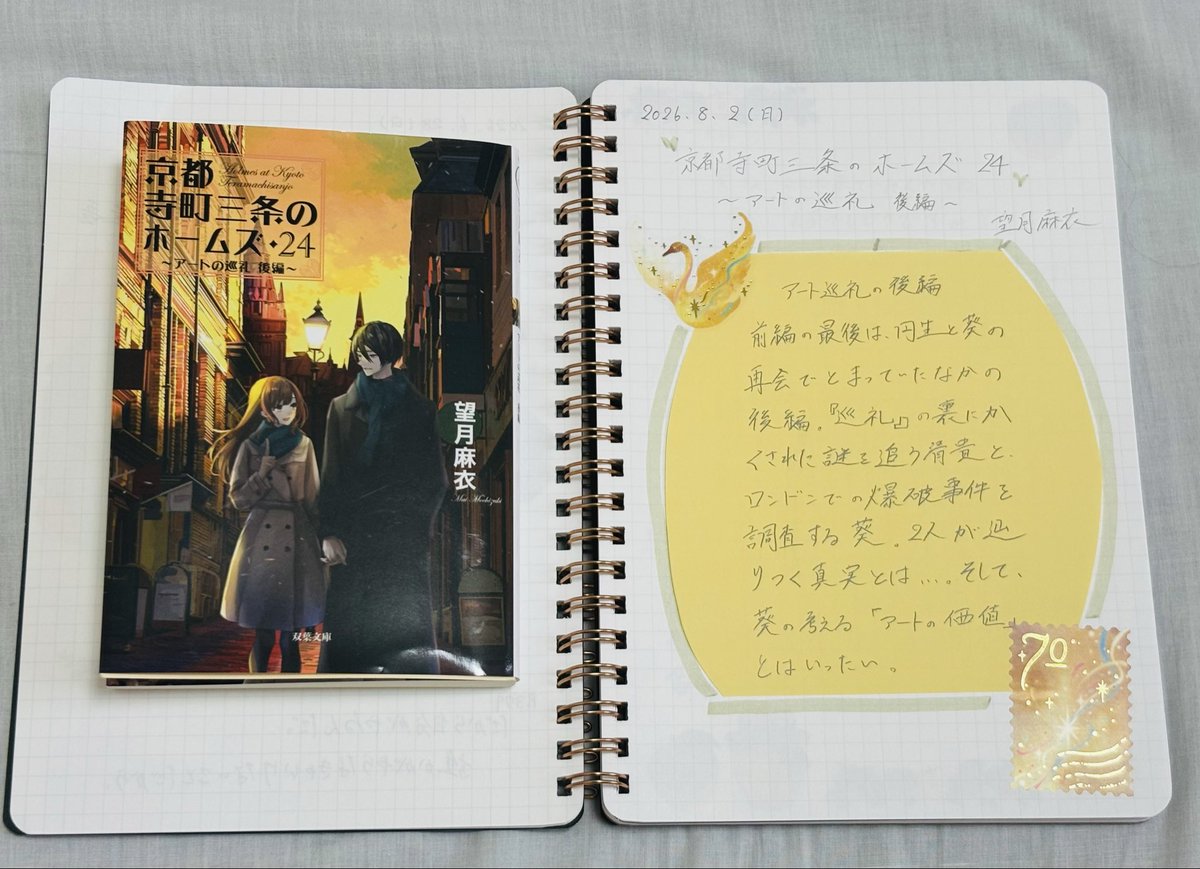 京都
寺町三条の
ホームズ・24
Holmes at Kyoto
Teramachisanjo
～アートの巡礼 後編～
望月麻衣
Mai Mochizuki
双葉文庫
2026.8.2(日)
京都寺町三条のホームズ 24
～アートの巡礼 後編～
望月麻衣
アート巡礼の後編
前編の最後は、円生と葵の
再会でとまっていたなかの
後編。『巡礼』の裏にか
くされた謎を追う清貴と、
ロンドンでの爆破事件を
調査する葵。2人が辿
りつく真実とは…。そして、
葵の考える「アートの価値」
とはいったい。
70